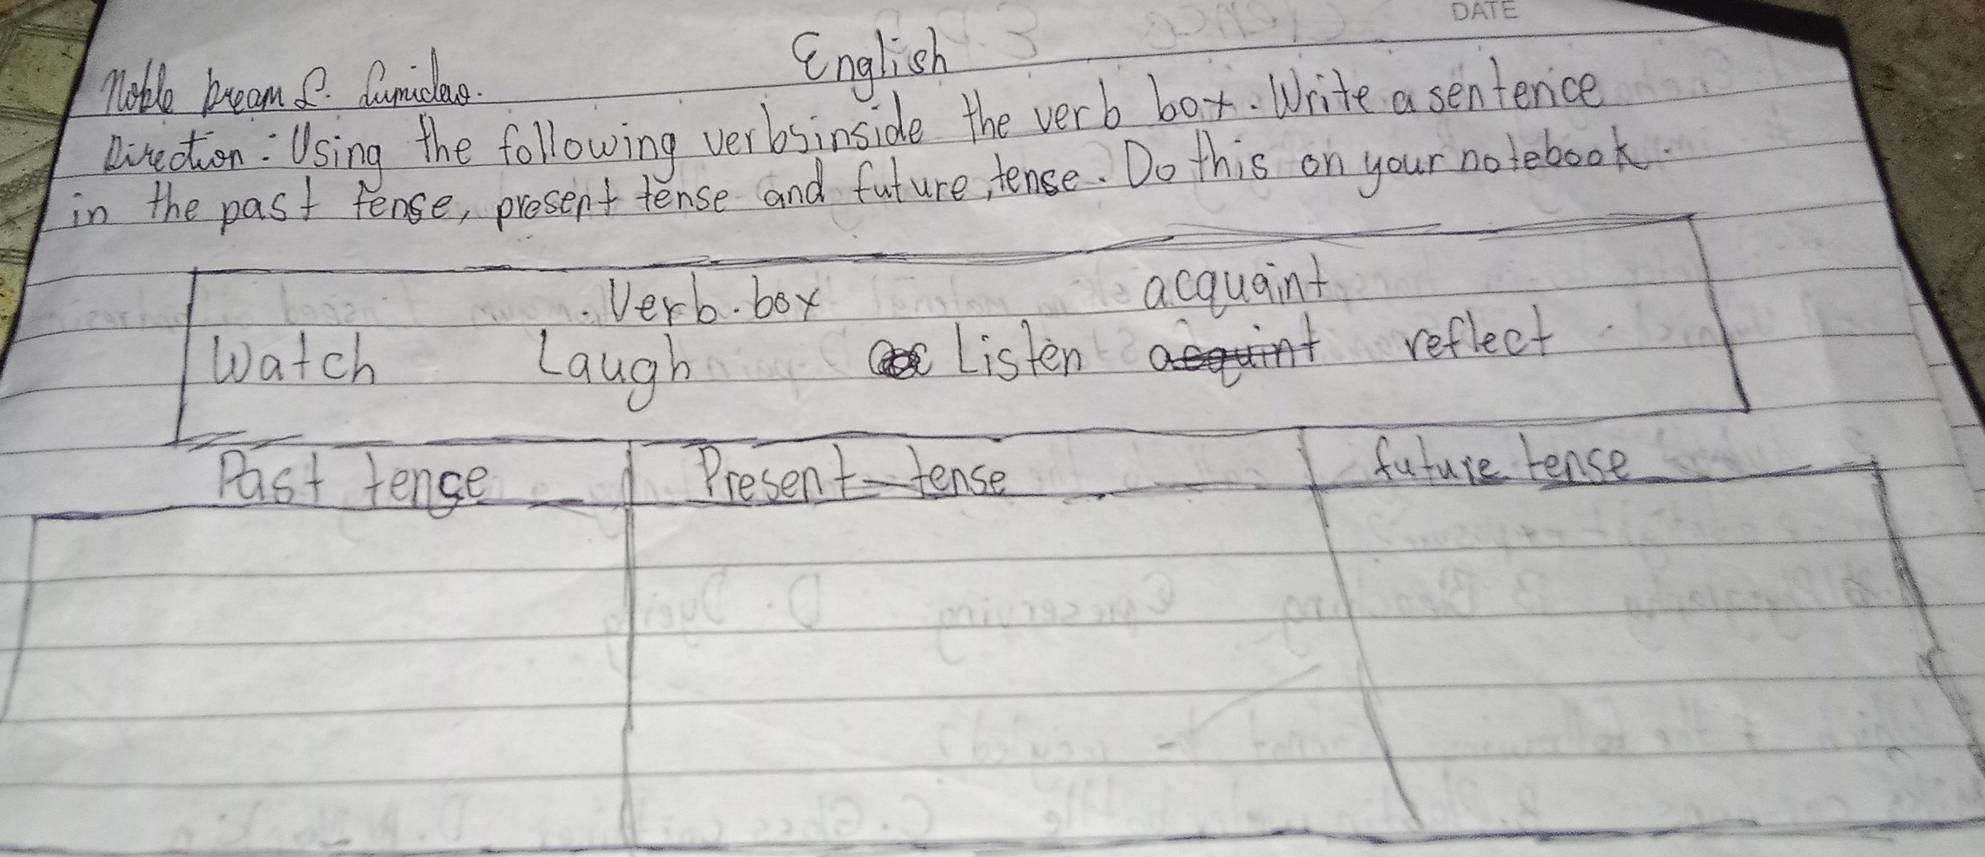 DATE
English
Noble bream P.
Direction: Using the following verbsinside the verb box. Write a sentence
in the past tense, present tense and future, tense. Do this on your notebook.
Verb. box acquaint
Watch Laugh Listen reflect
Past tense Present tense future tense